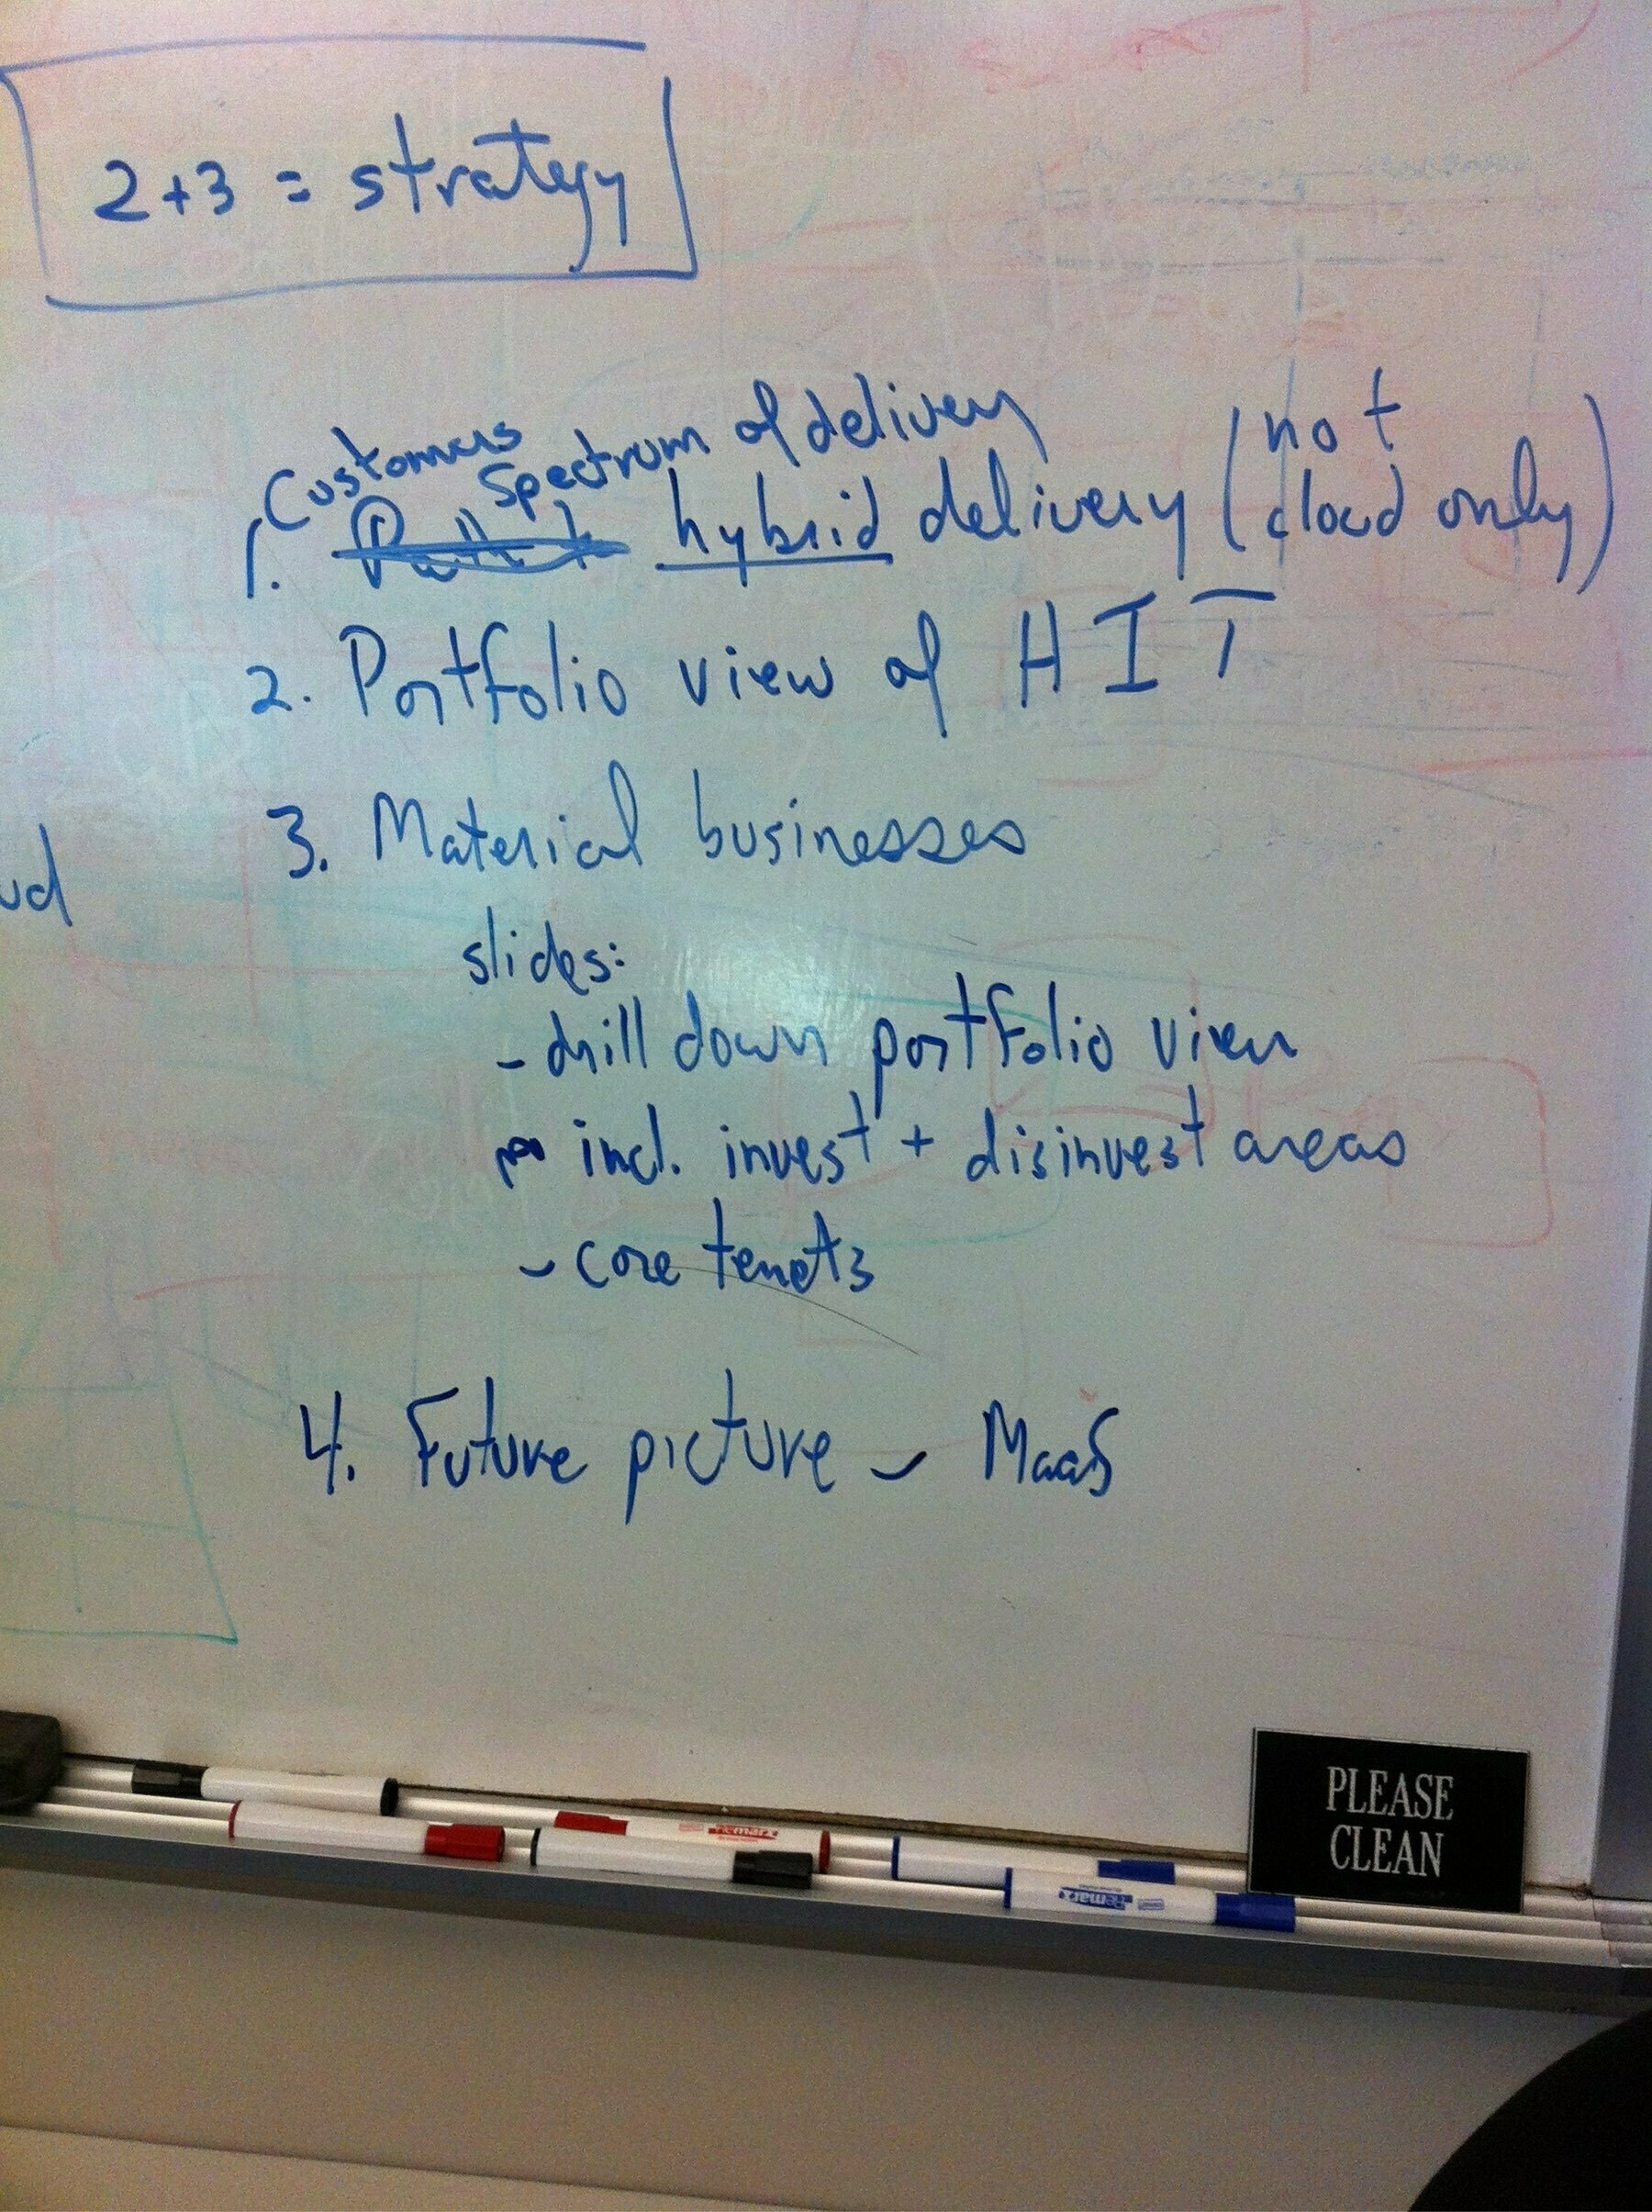 2+3 = strategy
Customers Spectrum of delivery
1. hybrid delivery (not cloud only)
2. Portfolio view of HIT
3. Material businesses
ud
slides:
- drill down portfolio view
incl. invest + disinvest areas
- core tenets
4. Future picture - MaaS
PLEASE
CLEAN
Remarx
Remarx